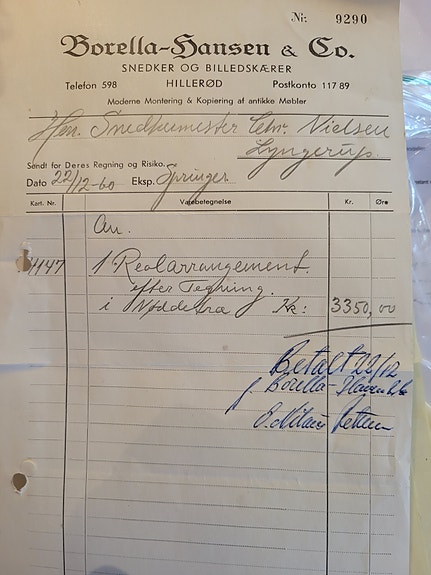 Nr. 9290
Borella-Hansen & Co.
SNEDKER OG BILLEDSKÆRER
Telefon 598 HILLERØD Postkonto 117 89
Moderne Montering & Kopiering af antikke Møbler
Hr. Snedkermester Chr. Nielsen
Lyngerup.
Sendt for Deres Regning og Risiko.
Dato 22/12-60 Eksp. Springer
Kart. Nr. Varebetegnelse Kr. Øre
An.
4147 1 Reolarrangement.
efter Tegning.
i Nøddetræ Kr: 3350,00
Betalt 22/12
p. Borella-Hansen & Co